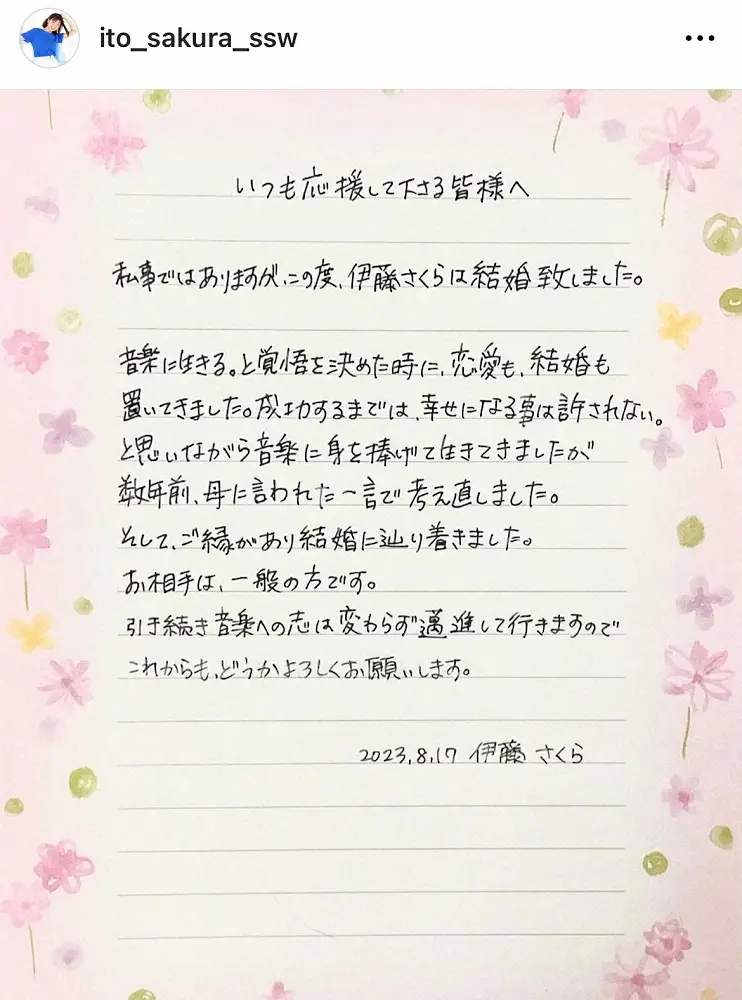 ito_sakura_ssw
いつも応援して下さる皆様へ
私事ではありますが、この度、伊藤さくらは結婚致しました。
音楽に生きる。と覚悟を決めた時に、恋愛も、結婚も
置いてきました。成功するまでは、幸せになる事は許されない。
と思いながら音楽に身を捧げて生きてきましたが
数年前、母に言われた一言で考え直しました。
そして、ご縁があり結婚に辿り着きました。
お相手は、一般の方です。
引き続き音楽への志は変わらず邁進して行きますので
これからも、どうかよろしくお願いします。
2023.8.17 伊藤 さくら